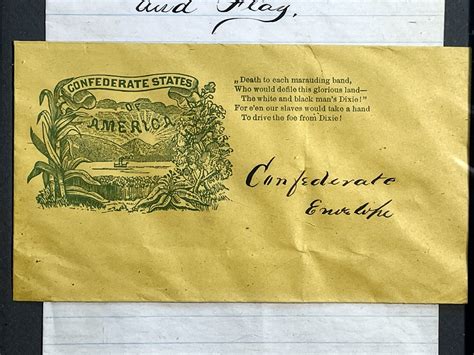 and Flag.
CONFEDERATE STATES
OF
AMERICA
„Death to each marauding band,
Who would defile this glorious land—
The white and black man's Dixie!"
For e'en our slaves would take a hand
To drive the foe from Dixie!
Confederate
Envelope